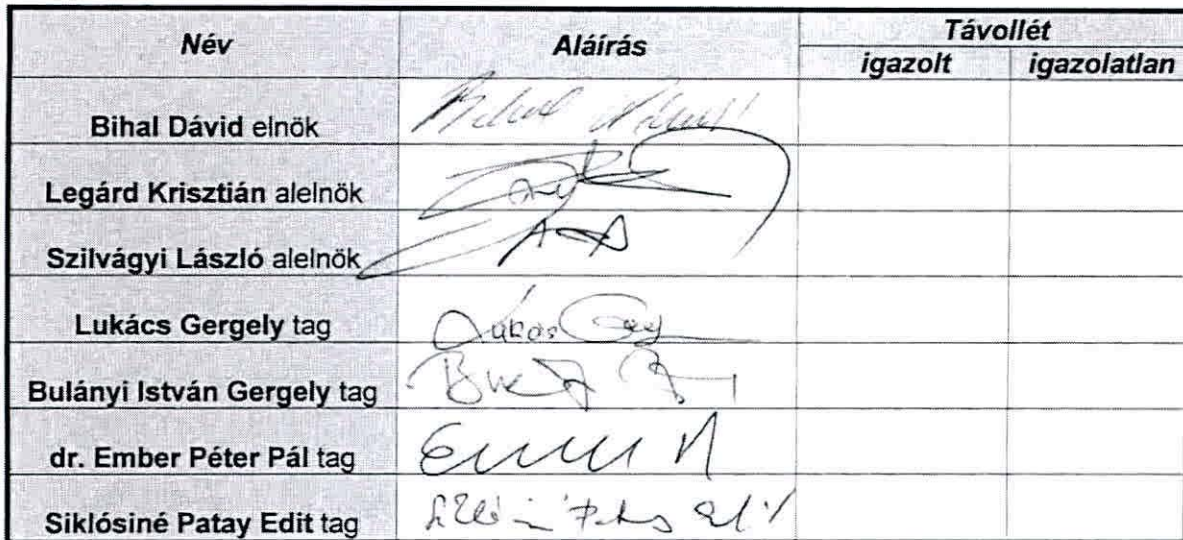 Név Aláírás Távollét
igazolt igazolatlan
Bihal Dávid elnök
Legárd Krisztián alelnök
Szilvágyi László alelnök
Lukács Gergely tag Lukács
Bulányi István Gergely tag
dr. Ember Péter Pál tag
Siklósiné Patay Edit tag